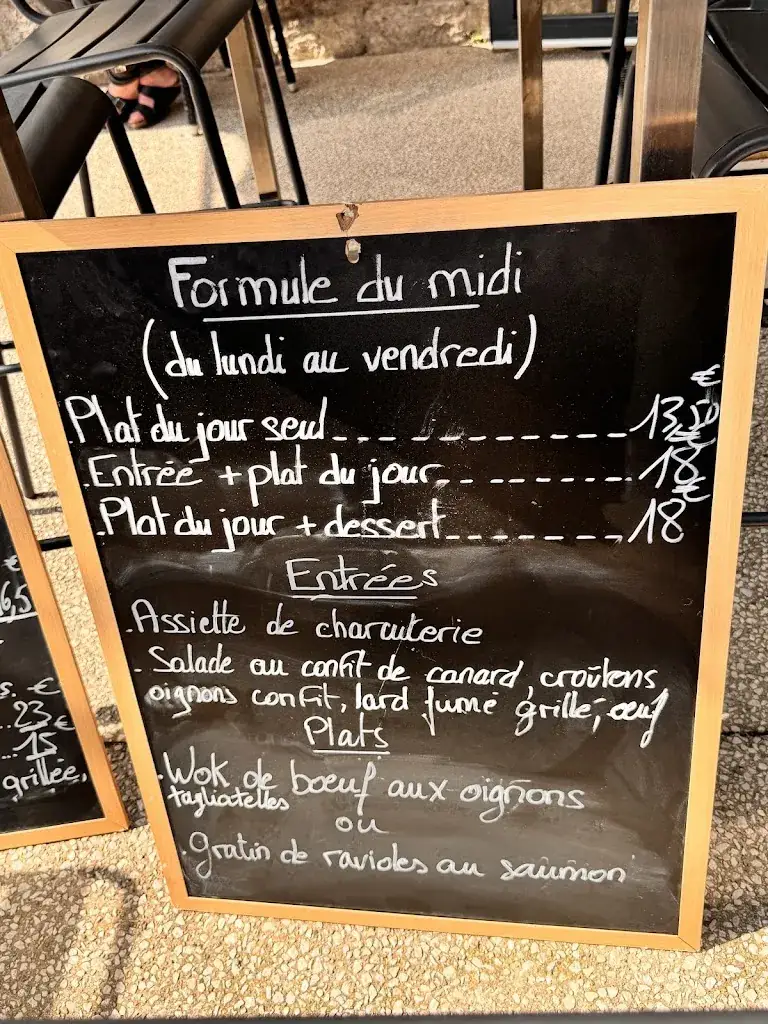 Formule du midi
(du lundi au vendredi)
Plat du jour seul............13,50 €
.Entrée + plat du jour.........18 €
.Plat du jour + dessert........18 €
Entrées
.Assiette de charcuterie
.Salade au confit de canard, croûtons
oignons confit, lard fumé grillé, œuf
Plats
.Wok de bœuf aux oignons
tagliatelles
ou
.gratin de ravioles au saumon
€
6,5
s. €
..23 €
...15
grillée,